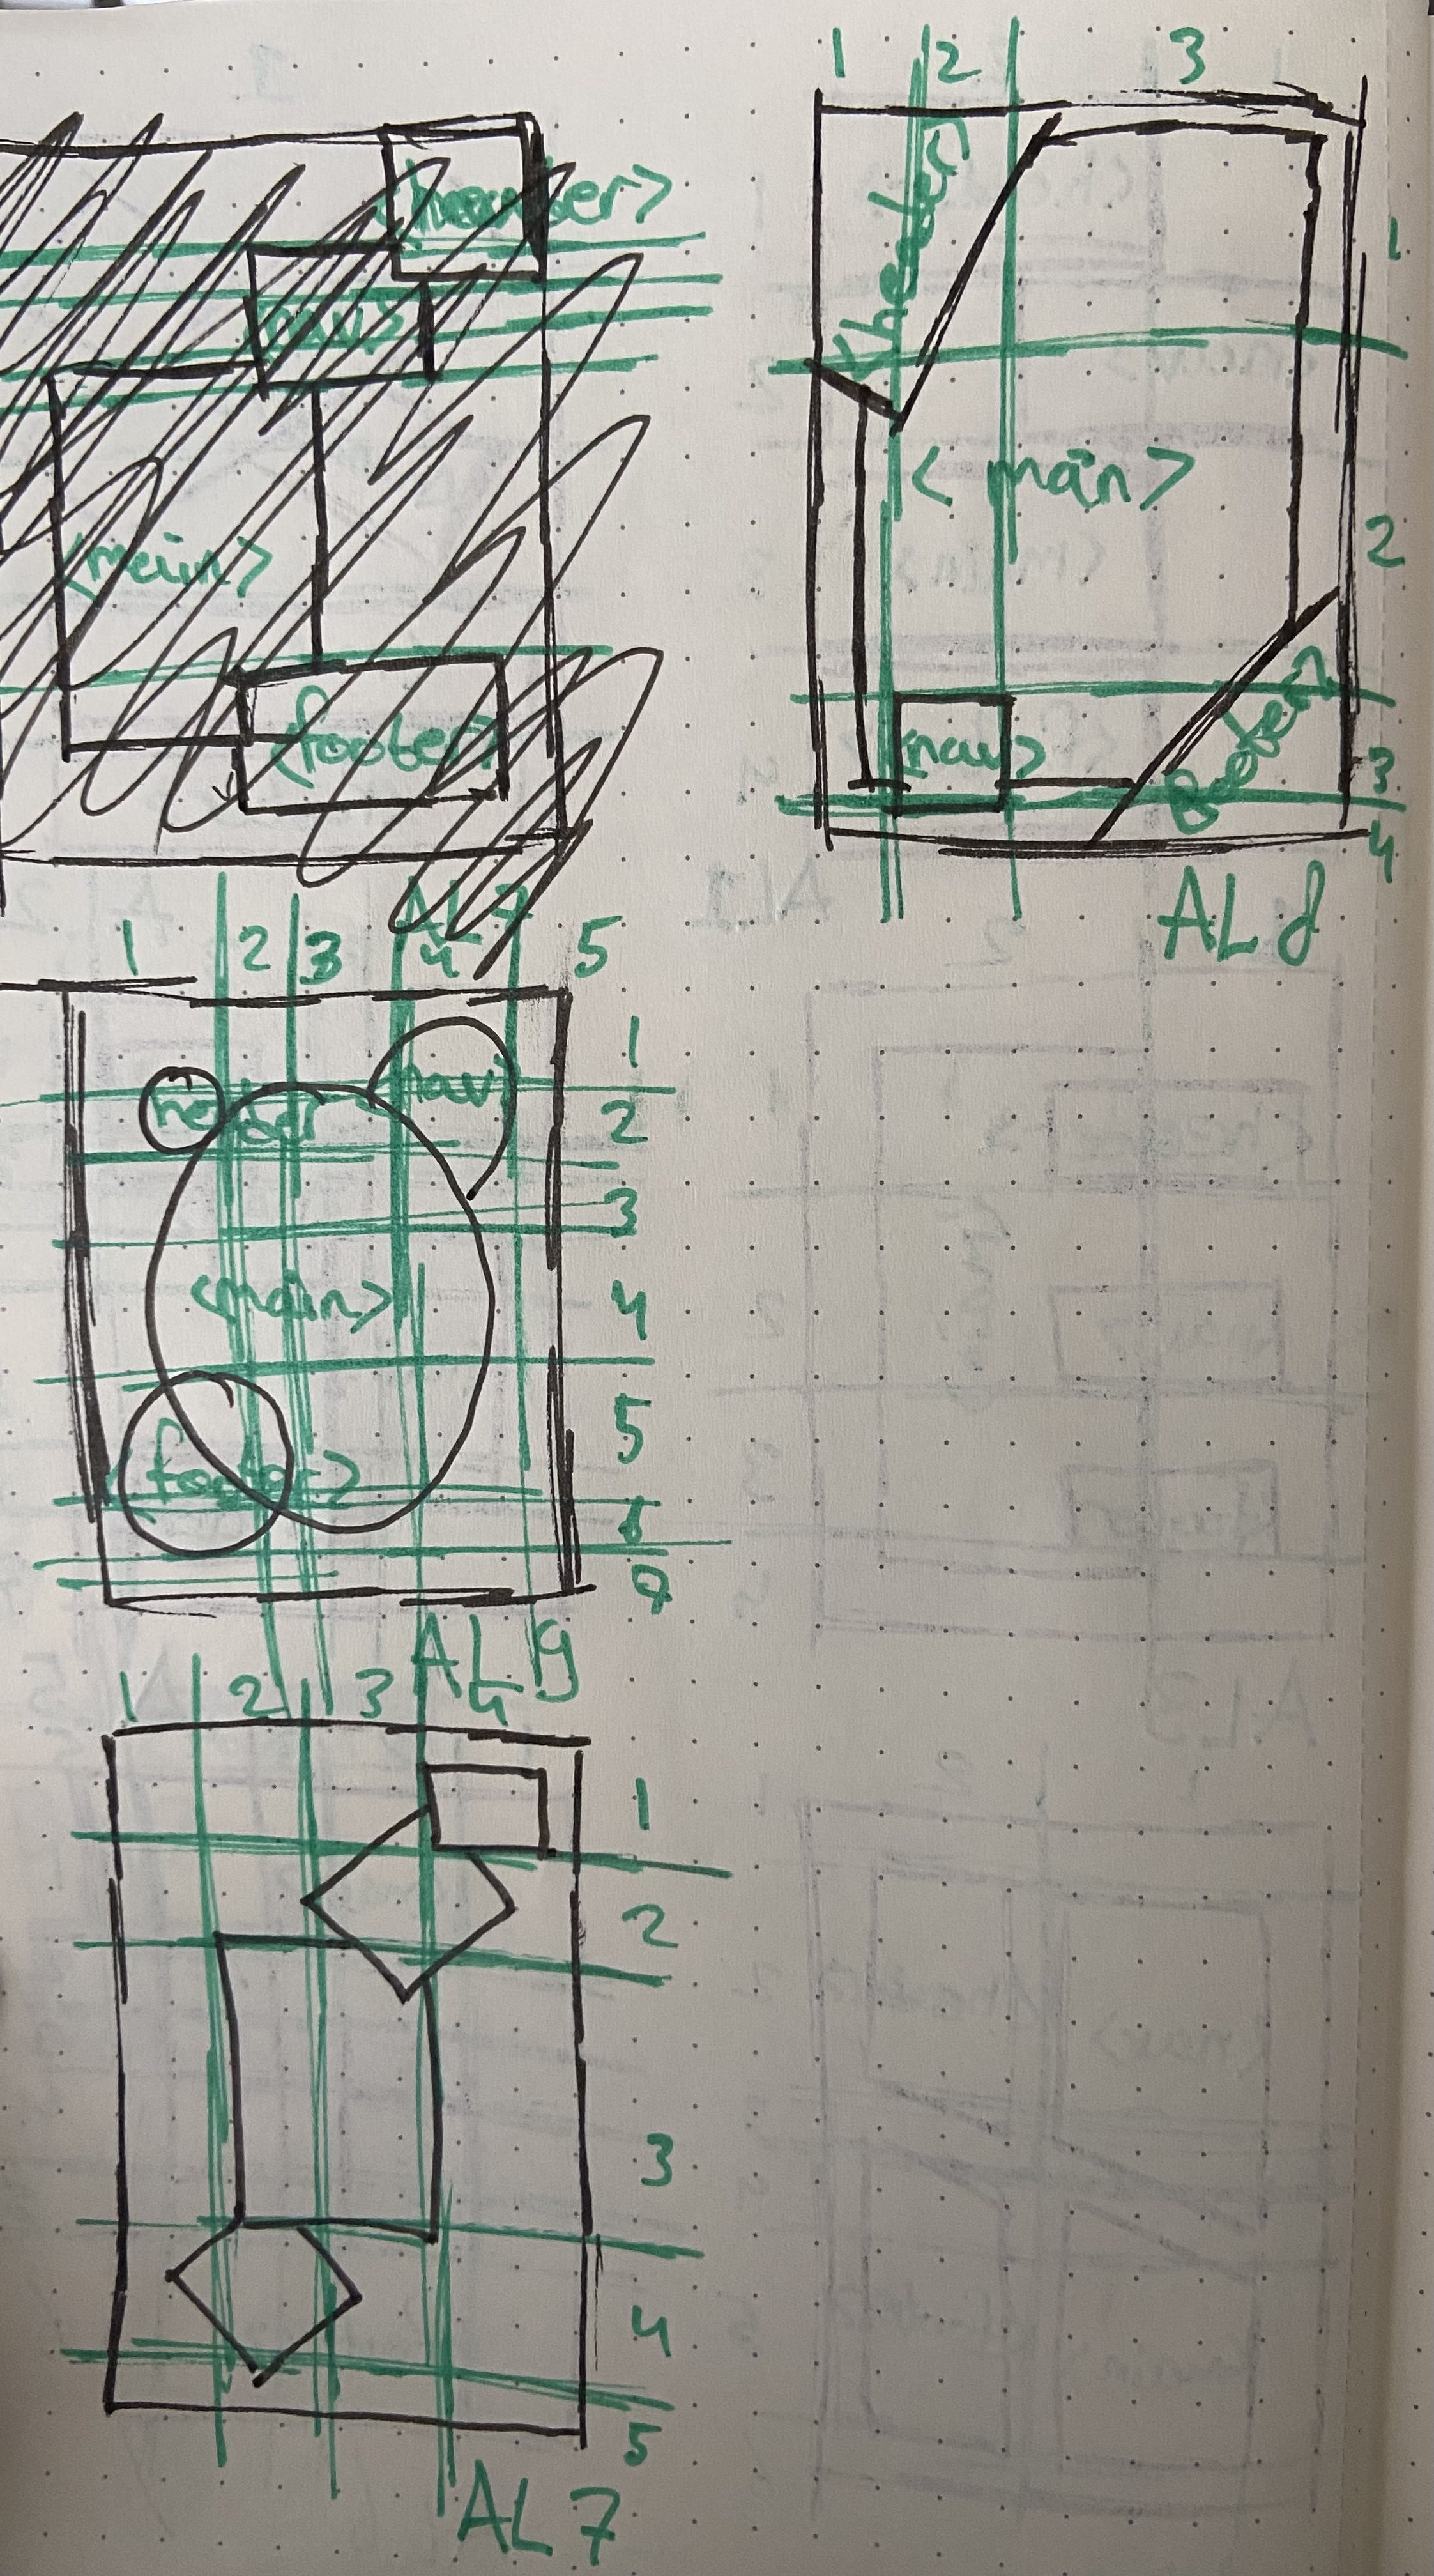 <header>
<nav>
<main>
<footer>
AL7
1 2 3
<header>
<main>
<nav>
<footer>
1
2
3
4
AL8
1 2 3 4 5
header
nav
<main>
<footer>
1
2
3
4
5
6
7
AL9
1 2 3 4
1
2
3
4
5
AL7